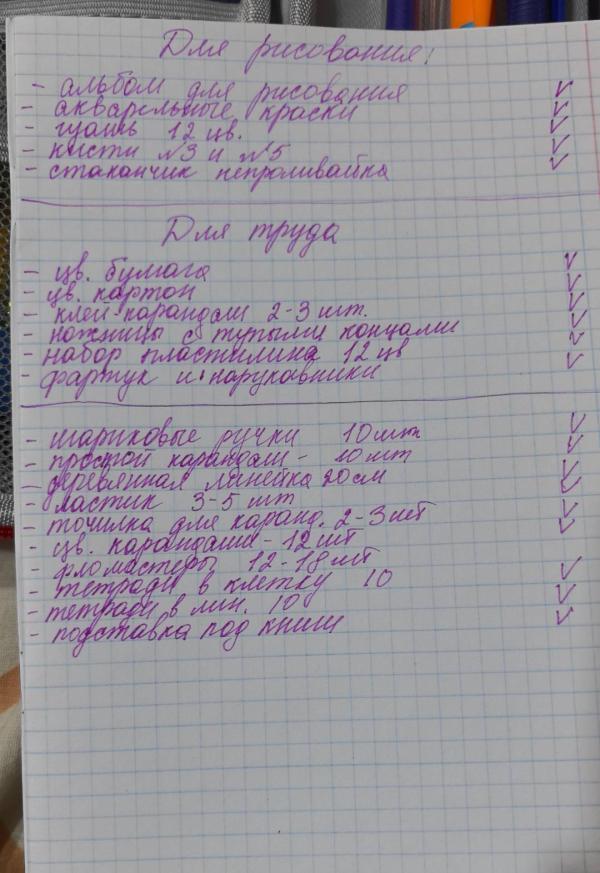 Для рисования:
- альбом для рисования ✓
- акварельные краски ✓
- гуашь 12 цв. ✓
- кисти №3 и №5 ✓
- стаканчик непроливайка ✓
Для труда
- цв. бумага ✓
- цв. картон ✓
- клей карандаш 2-3 шт. ✓
- ножницы с тупыми концами ✓
- набор пластилина 12 цв ✓
- фартук и нарукавники ✓
- шариковые ручки 10 шт ✓
- простой карандаш - 10 шт ✓
- деревянная линейка 20 см ✓
- ластик 3-5 шт ✓
- точилка для каранд. 2-3 шт ✓
- цв. карандаши - 12 шт ✓
- фломастеры 12-18 шт
- тетради в клетку 10 ✓
- тетради в лин. 10 ✓
- подставка под книги ✓